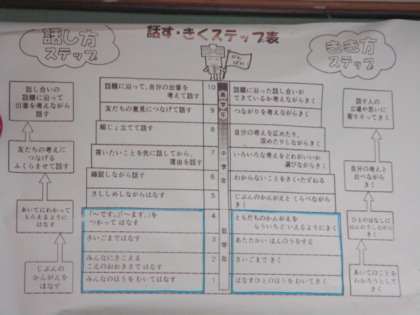 話し方
ステップ
話す・きくステップ表
きき方
ステップ
話し合いの
話題に沿って
出番を考えながら
話す
友だちの考えに
つなげる
ふくらませて話す
あいてにわかって
もらえるように
はなす
じぶんの
かんがえを
はなす
話題に沿って、自分の出番を
考えて話す
10
話題に沿った話し合いが
できているか考えながらきく
友だちの意見につなげて話す
9
つながりを考えながらきく
順じょ立てて話す
8
自分の考えを広めたり、
深めたりしながらきく
言いたいことを先に話してから、
理由を話す
7
いろいろな考えをとどめがいいか
選びながらきく
確認しながら話す
6
わからないことをきいたずねる
さししめしながらはなす
5
じぶんのかんがえと くらべながらきく
「～です。」「～ます。」を
つかって はなす
4
ともだちのかんがえを
もういちど いえるようにきく
さいごまではなす
3
あたたかい はんのうをする
みんなにきこえる
こえのおおきさで はなす
2
さいごまで きく
みんなのほうを むいてはなす
1
はなすひとのほうを むいてきく
話す人の
立場や思いに
寄りそってきく
自分の考えと
比べながら
きく
ひとのはなしに
はんのうしながら
きく
あいてのことを
わかろうとして
きく